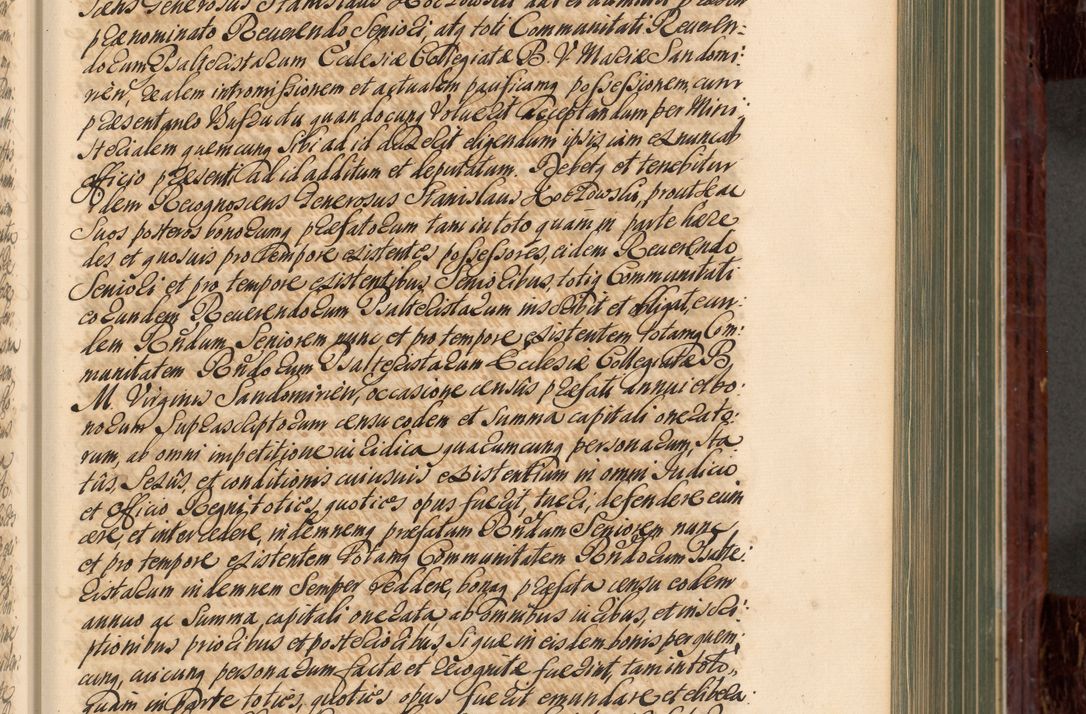 praenominato Reverendo Seniori, atq toti Communitati Reveren:
dorum Psalteristarum Ecclesiae Collegiatae B. V. Mariae Sandomi:
rien, realem intromissionem et actualem pacificamq possessionem cum
praesentaneo Usufructu quandocunq voluerit acceptandam per Mini
sterialem quemcunq sibi ad id duxerit eligendum ipsis iam ex nuncab
officio praesenti ad id additum et deputatum. Debet et tenebitur
Idem Recognoscens Generosus Stanislaus prout de ac
Suos posteros bonorumq praefatorum tam in toto quam in parte haere
des et quosvis pro tempore existentes possessores, eidem Reverendo
Seniori et pro tempore existentibus Senioribus, totiq Communitati
eorundem Reverendorum Psalteristarum inscribit et obligat, eun:
dem Rndum Seniorem nunc et pro tempore existentem totamq Com:
munitatem Rndorum Psalteristarum Ecclesiae Collegiatae B.
M. Virginis Sandomirien, occasione census praefati annui et bo:
norum suprascriptorum censu eodem et summa capitali onerato:
rum, ab omni impetitione iuridica quarumcunq personarum, sta
tus, sexus et conditionis cuiusvis existentium in omni Iudicio
et officio Regni, toties, quoties opus fuerit, tueri, defendere evin
cere, et intercedere, indemnemq praefatum Rndum Seniorem nunc
et pro tempore existentem totamq Communitatem Rndorum Psalte:
ristarum indemnem semper reddere, bonaq praefata censu eodem
annuo ac summa capitali onerata ab omnibus iuribus, et inscri:
ptionibus prioribus et posterioribus, si quae in eisdem bonis per quem:
cunq, aut cunq personarum factae et recognitae fuerint, tam in toto,
quam in parte toties, quoties opus fuerit emundare et libera: